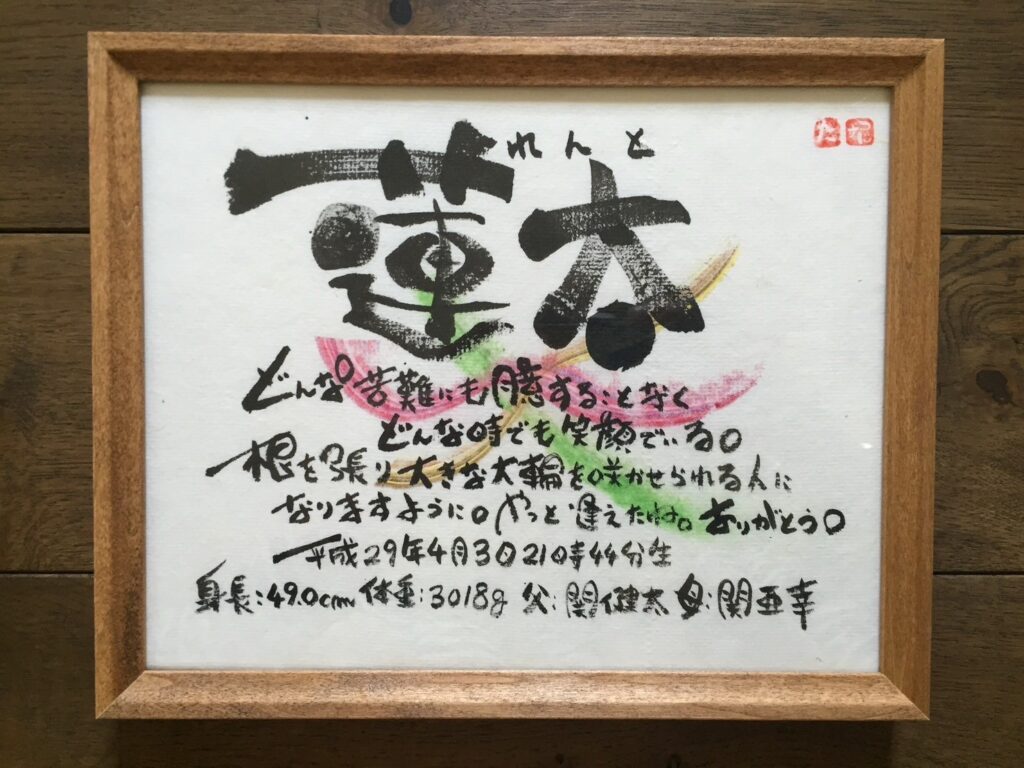 れんと
蓮太
どんな苦難にも臆することなく
どんな時でも笑顔でいる。
根を張り大きな大輪を咲かせられる人に
なりますように。やっと逢えたね。ありがとう。
平成29年4月3日21時44分生
身長:49.0cm 体重:3018g 父:関健太 母:関亜幸